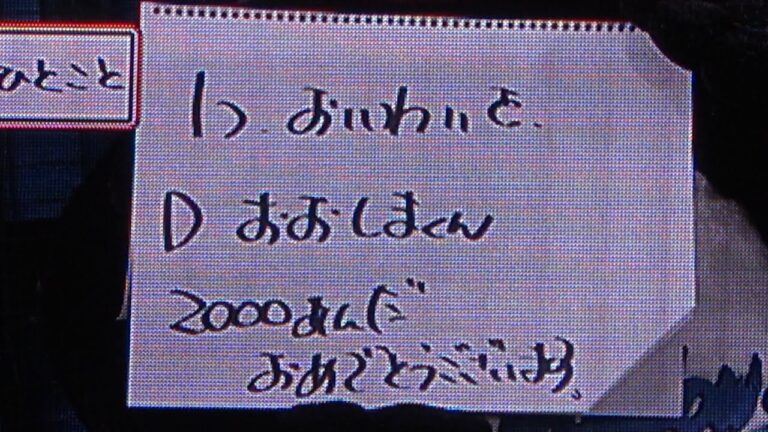 ひとこと
1つ.おいわいを.
D おおしまくん
2000あんだ
おめでとうございます。